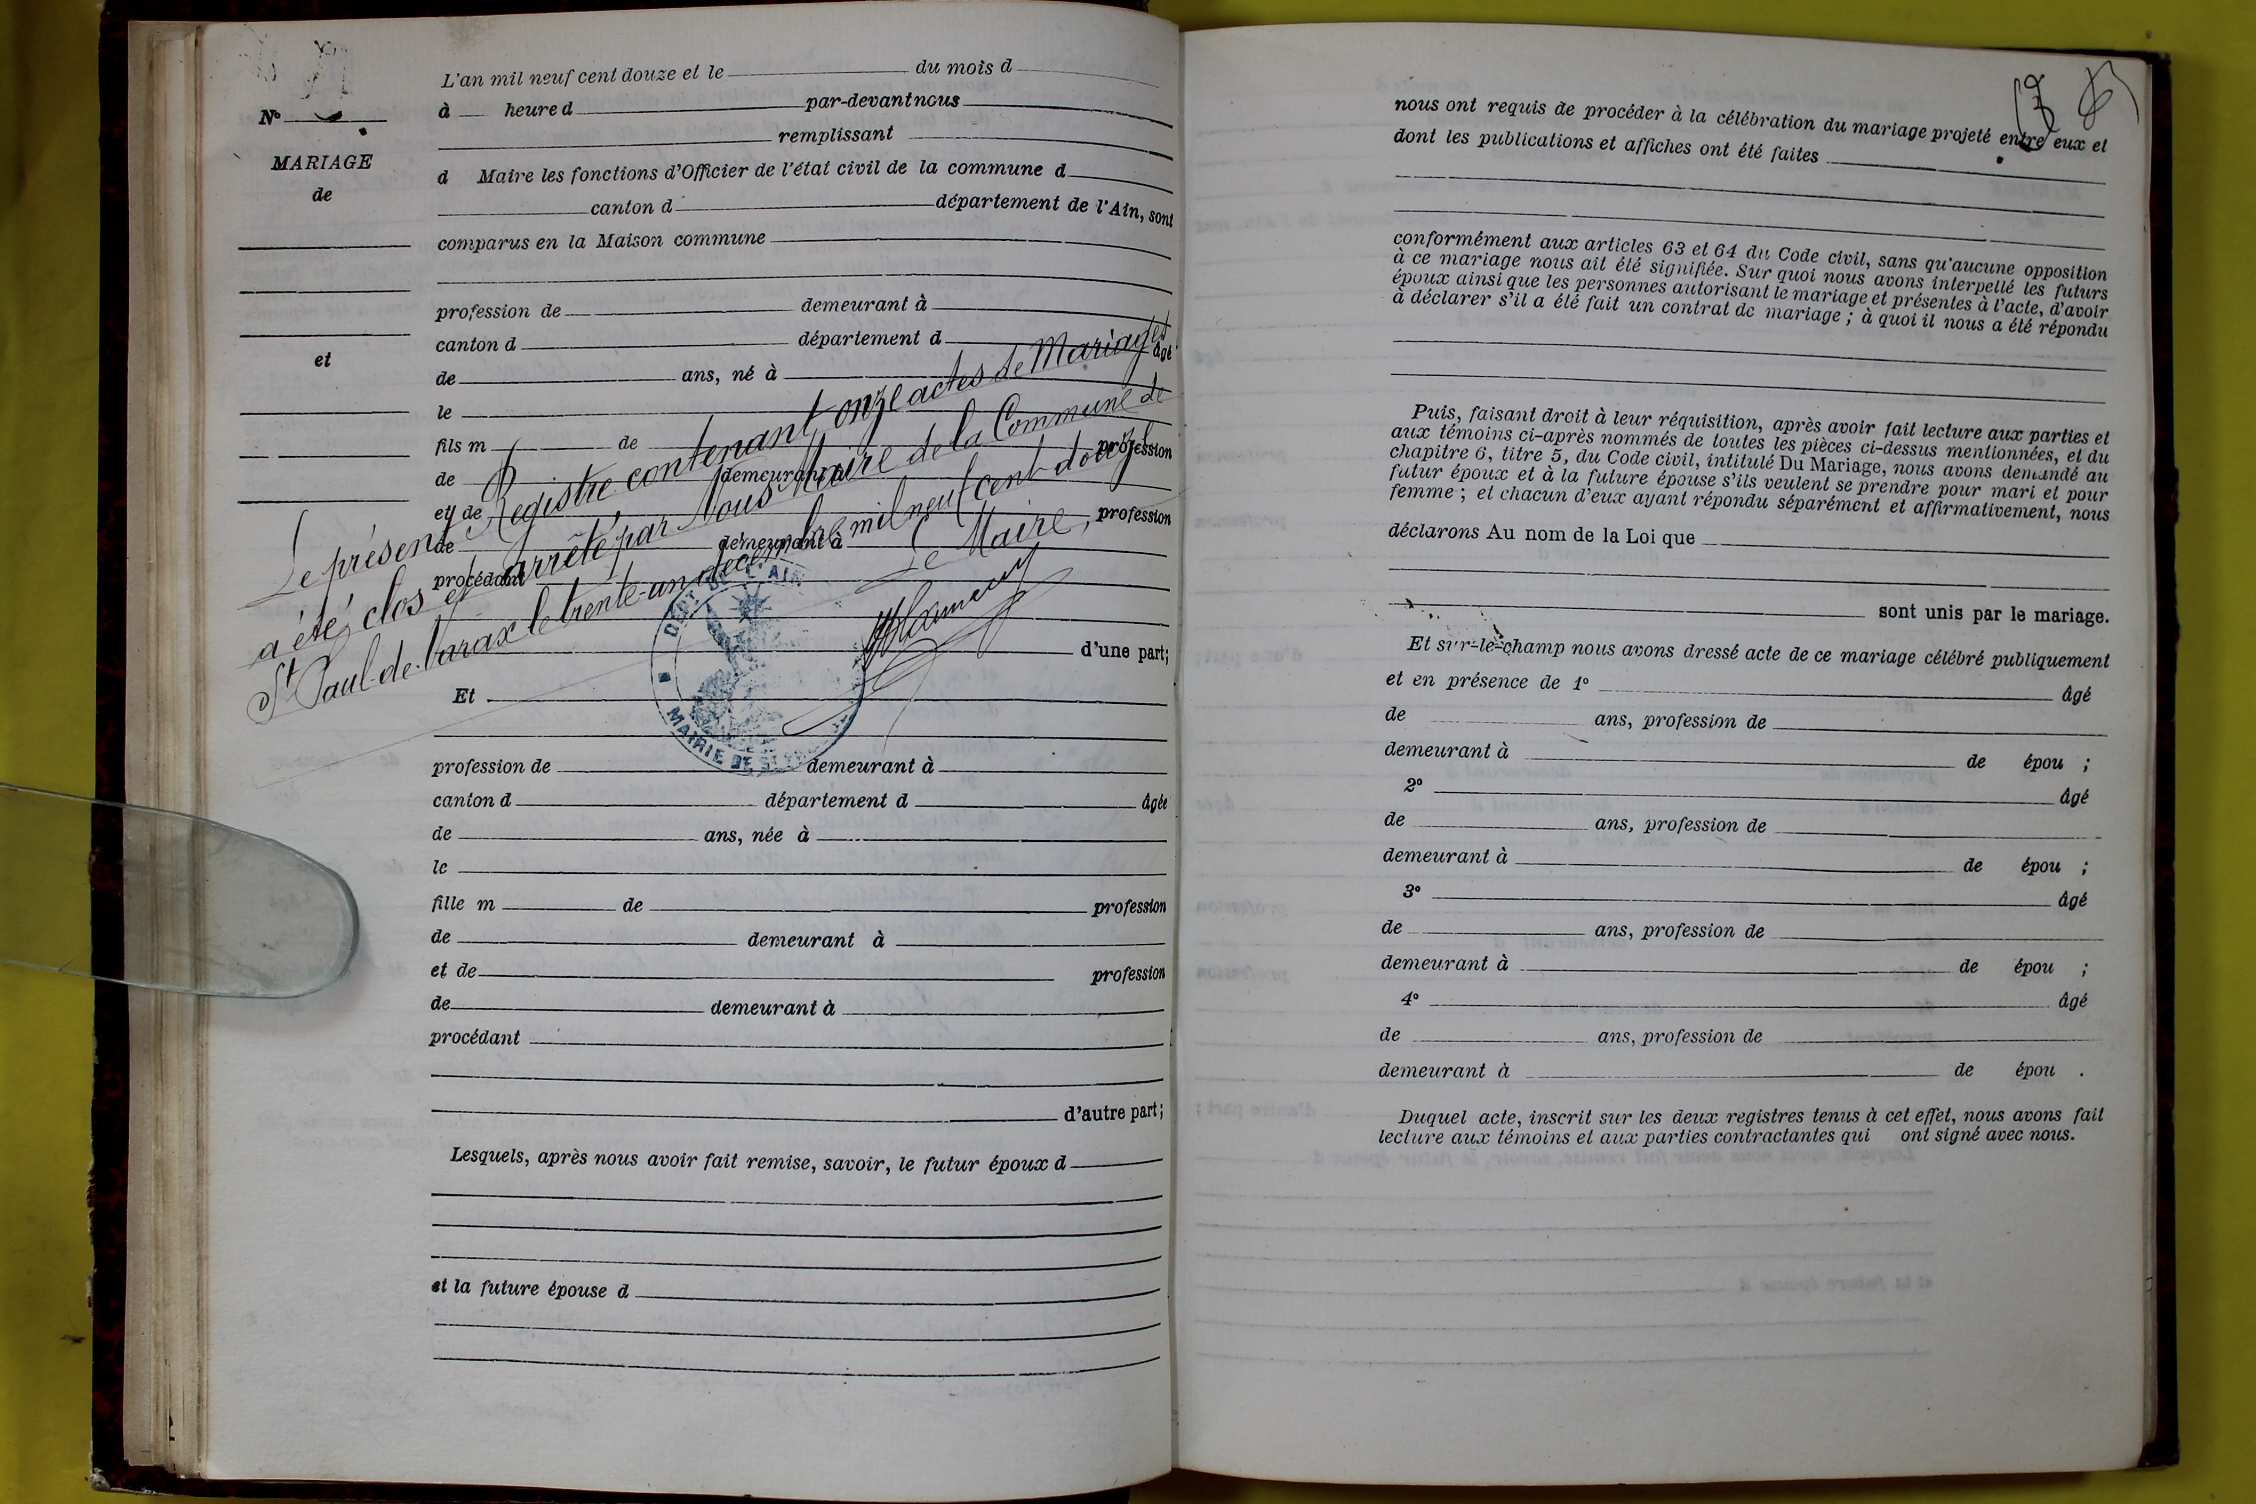 L'an mil neuf cent douze et le du mois d
à heure d par-devant nous
remplissant
d Maire les fonctions d'Officier de l'état civil de la commune d
canton d département de l'Ain, sont
comparus en la Maison commune
profession de demeurant à
canton d département d âgé
de ans, né à
le
fils m de profession
de demeurant à
et de profession
de demeurant à
procédant
d'une part;
Et
profession de demeurant à
canton d département d âgée
de ans, née à
le
fille m de profession
de demeurant à
et de profession
de demeurant à
procédant
d'autre part;
Lesquels, après nous avoir fait remise, savoir, le futur époux d
et la future épouse d
No
MARIAGE
de
et
Le présent Registre contenant onze actes de Mariages
a été clos et arrêté par Nous Maire de la Commune de
St Paul-de-Varax le trente-un décembre mil neuf cent douze
Le Maire,
DEPT DE L'AIN
MAIRIE DE ST
nous ont requis de procéder à la célébration du mariage projeté entre eux et
dont les publications et affiches ont été faites
conformément aux articles 63 et 64 du Code civil, sans qu'aucune opposition
à ce mariage nous ait été signifiée. Sur quoi nous avons interpellé les futurs
époux ainsi que les personnes autorisant le mariage et présentes à l'acte, d'avoir
à déclarer s'il a été fait un contrat de mariage ; à quoi il nous a été répondu
Puis, faisant droit à leur réquisition, après avoir fait lecture aux parties et
aux témoins ci-après nommés de toutes les pièces ci-dessus mentionnées, et du
chapitre 6, titre 5, du Code civil, intitulé Du Mariage, nous avons demandé au
futur époux et à la future épouse s'ils veulent se prendre pour mari et pour
femme ; et chacun d'eux ayant répondu séparément et affirmativement, nous
déclarons Au nom de la Loi que
sont unis par le mariage.
Et sur-le-champ nous avons dressé acte de ce mariage célébré publiquement
et en présence de 1° âgé
de ans, profession de
demeurant à de épou ;
2° âgé
de ans, profession de
demeurant à de épou ;
3° âgé
de ans, profession de
demeurant à de épou ;
4° âgé
de ans, profession de
demeurant à de épou .
Duquel acte, inscrit sur les deux registres tenus à cet effet, nous avons fait
lecture aux témoins et aux parties contractantes qui ont signé avec nous.